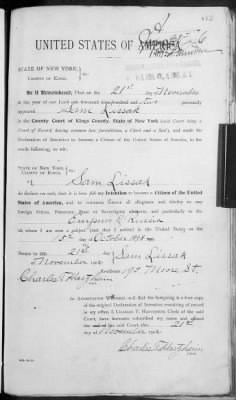 UNITED STATES OF AMERICA
STATE OF NEW YORK,
COUNTY OF KINGS,
Be it Remembered, That on the 21st day of November
in the year of our Lord one thousand nine hundred and two personally
appeared Sam Lissak
in the County Court of Kings County, State of New York (said Court being a
Court of Record, having common law jurisdiction, a Clerk and a Seal), and made his
Declaration of Intention to become a Citizen of the United States of America, in the
words following, to wit:
STATE OF NEW YORK,
COUNTY OF KINGS,
I, Sam Lissak
do declare on oath, that it is bona fide my Intention to become a Citizen of the United
States of America, and to renounce forever all allegiance and fidelity to any
foreign Prince, Potentate, State or Sovereignty whatever, and particularly to the
Emperor of Russia
of whom I am now a subject; and that I arrived in the United States on the
day of October
Sworn to this 21st
day of
November 1902 Sam Lissak
Residence Moore St.
Charles T. Hartzheim
Clerk
IN ATTESTATION WHEREOF, and that the foregoing is a true copy
of the original Declaration of Intention remaining of record
in my office, I, CHARLES T. HARTZHEIM, Clerk of the said
Court, have hereunto subscribed my name and affixed
the seal of the said Court, this 21st
day of November 1902
Charles T. Hartzheim
Clerk